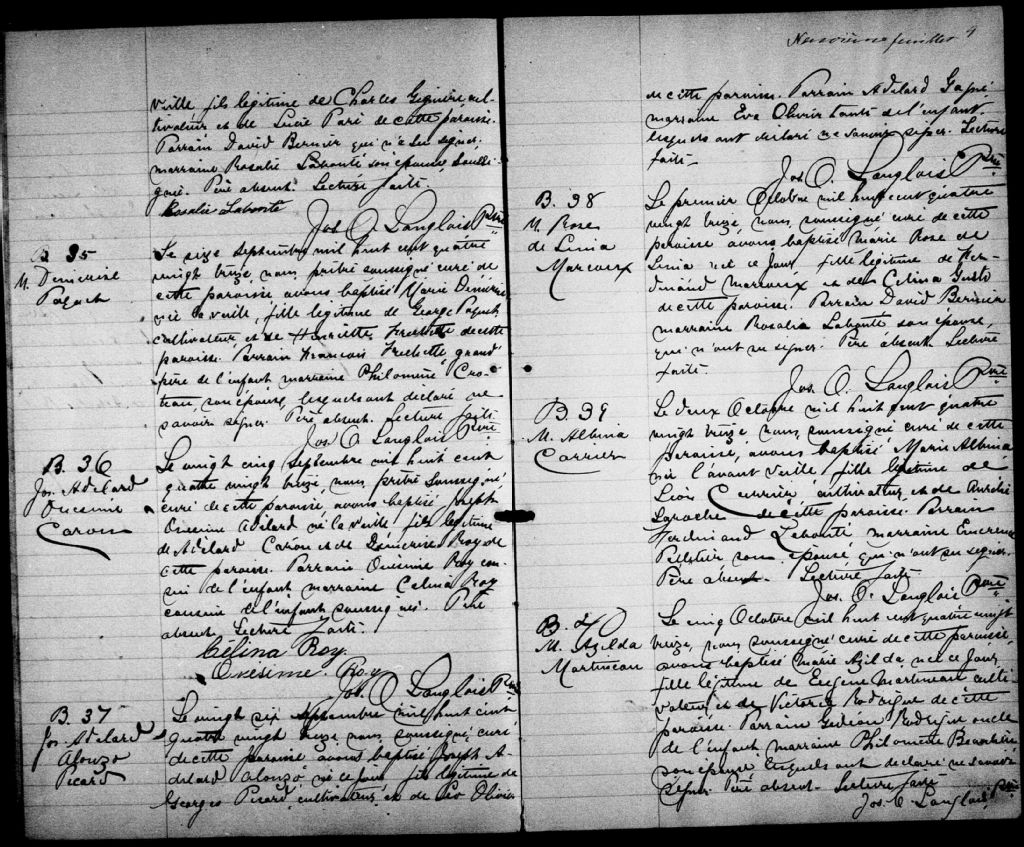 veille fils légitime de Charles
tivateur et de Lucie Paré de cette paroisse.
Parrain David Bernier qui n'a su signer;
marraine Rosalie Labonté son épouse, soussi-
gnée. Père absent. Lecture faite
Rosalie Labonte
Jos O. Langlois Ptre
B 35
M. Démerise
Paquet
Le seize septembre mil huit cent quatre
vingt treize, nous prêtre soussigné curé de
cette paroisse avons baptisé Marie Démerise
née la veille, fille légitime de George Paquet,
cultivateur et de Henriette Frechette de cette
paroisse. Parrain François Frechette grand
père de l'enfant marraine Philomène Cro-
teau, son épouse, lesquels ont déclaré ne
savoir signer. Père absent. Lecture faite
Jos O Langlois Ptre
B. 36
Jos. Adelard
Onesime
Caron
Le vingt cinq septembre mil huit cent
quatre vingt treize, nous prêtre soussigné,
curé de cette paroisse, avons baptisé Joseph
Onesime Adelard né la veille, fils légitime
de Adelard Caron et de Démerise Roy de
cette paroisse. Parrain Onesime Roy cou-
sin de l'enfant marraine Celina Roy
cousine de l'enfant soussignés. Père
absent. Lecture faite.
Célina Roy.
Onésime. Roy
Jos. O Langlois Ptre
B. 37
Jos. Adelard
Alonzo
Picard
Le vingt six septembre mil huit cent
quatre vingt treize nous, soussigné, curé
de cette paroisse avons baptisé Joseph A-
delard Alonzo né ce jour fils légitime de
Georges Picard, cultivateur, et de Olivier
feuillet 9
de cette paroisse. Parrain Adelard
marraine Eve Olivier tante de l'enfant
lesquels ont déclaré ne savoir signer. Lecture
faite
Jos O. Langlois Ptre
B. 38
M. Rose
de Lima
Marcoux
Le premier Octobre mil huit cent quatre
vingt treize, nous, soussigné curé de cette
paroisse avons baptisé Marie Rose de
Lima née ce jour fille légitime de Fer-
dinand Marcoux et de Celina
de cette paroisse. Parrain David Bernier
marraine Rosalie Labonté son épouse,
qui n'ont su signer. Père absent. Lecture
faite
Jos. O. Langlois Ptre
B. 39
M. Albina
Carrier
Le deux Octobre mil huit cent quatre
vingt treize, nous, soussigné curé de cette
paroisse, avons baptisé Marie Albina
née l'avant veille fille légitime de
Léon Carrier, cultivateur, et de Aurélie
Laroche de cette paroisse. Parrain
Ferdinand Labonté marraine
Pelletier son épouse qui n'ont su signer
Père absent. Lecture faite
Jos. O. Langlois Ptre
B. 40
M. Azilda
Martineau
Le cinq Octobre mil huit cent quatre vingt
treize, nous, soussigné curé de cette paroisse
avons baptisé Marie Azilda, née ce jour,
fille légitime de Eugène Martineau culti-
vateur et de Victoria Rodrigue de cette
paroisse. Parrain Gédéon Rodrigue oncle
de l'enfant marraine Philomène
son épouse lesquels ont déclaré ne savoir
signer. Père absent. Lecture faite
Jos. O. Langlois, Ptre